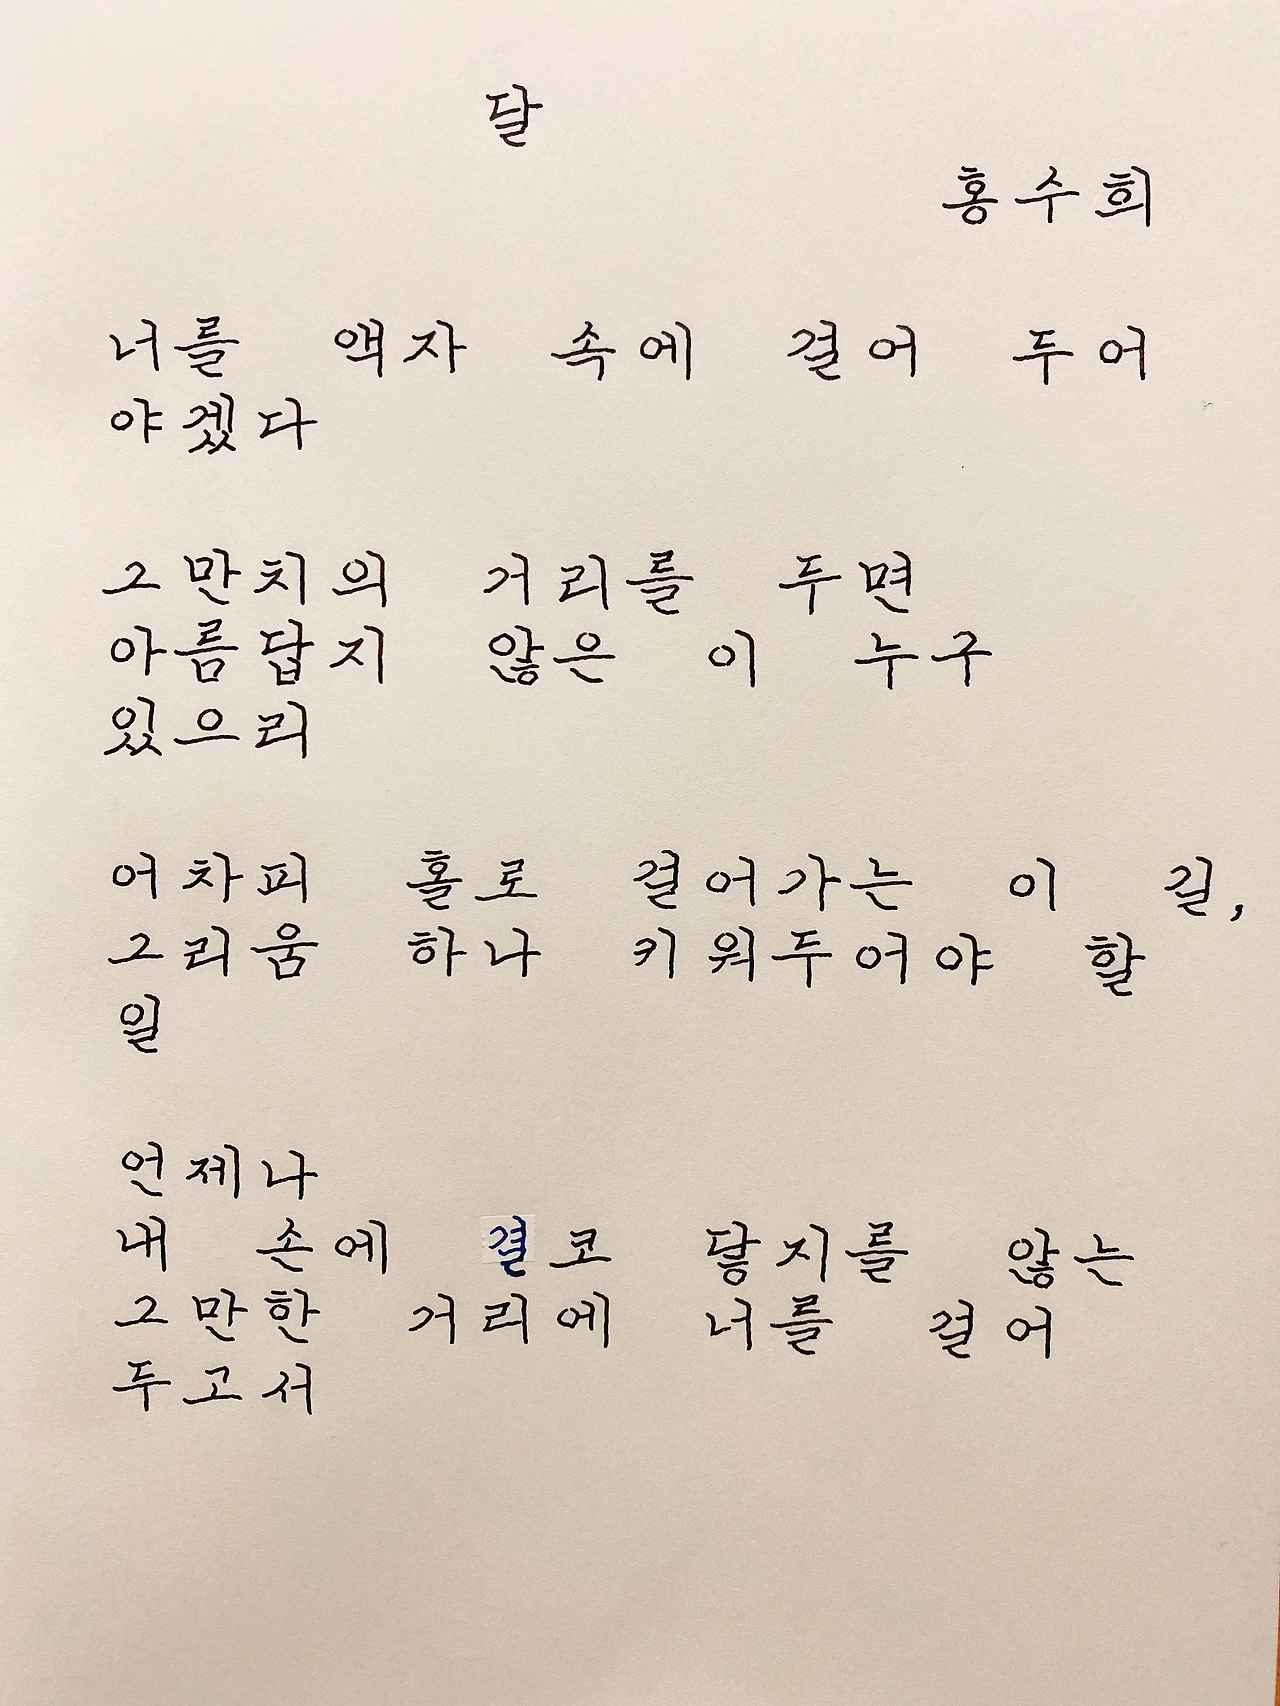 달
홍수희
너를 액자 속에 걸어 두어
야겠다
그만치의 거리를 두면
아름답지 않은 이 누구
있으리
어차피 홀로 걸어가는 이 길,
그리움 하나 키워두어야 할
일
언제나
내 손에 결코 닿지를 않는
그만한 거리에 너를 걸어
두고서